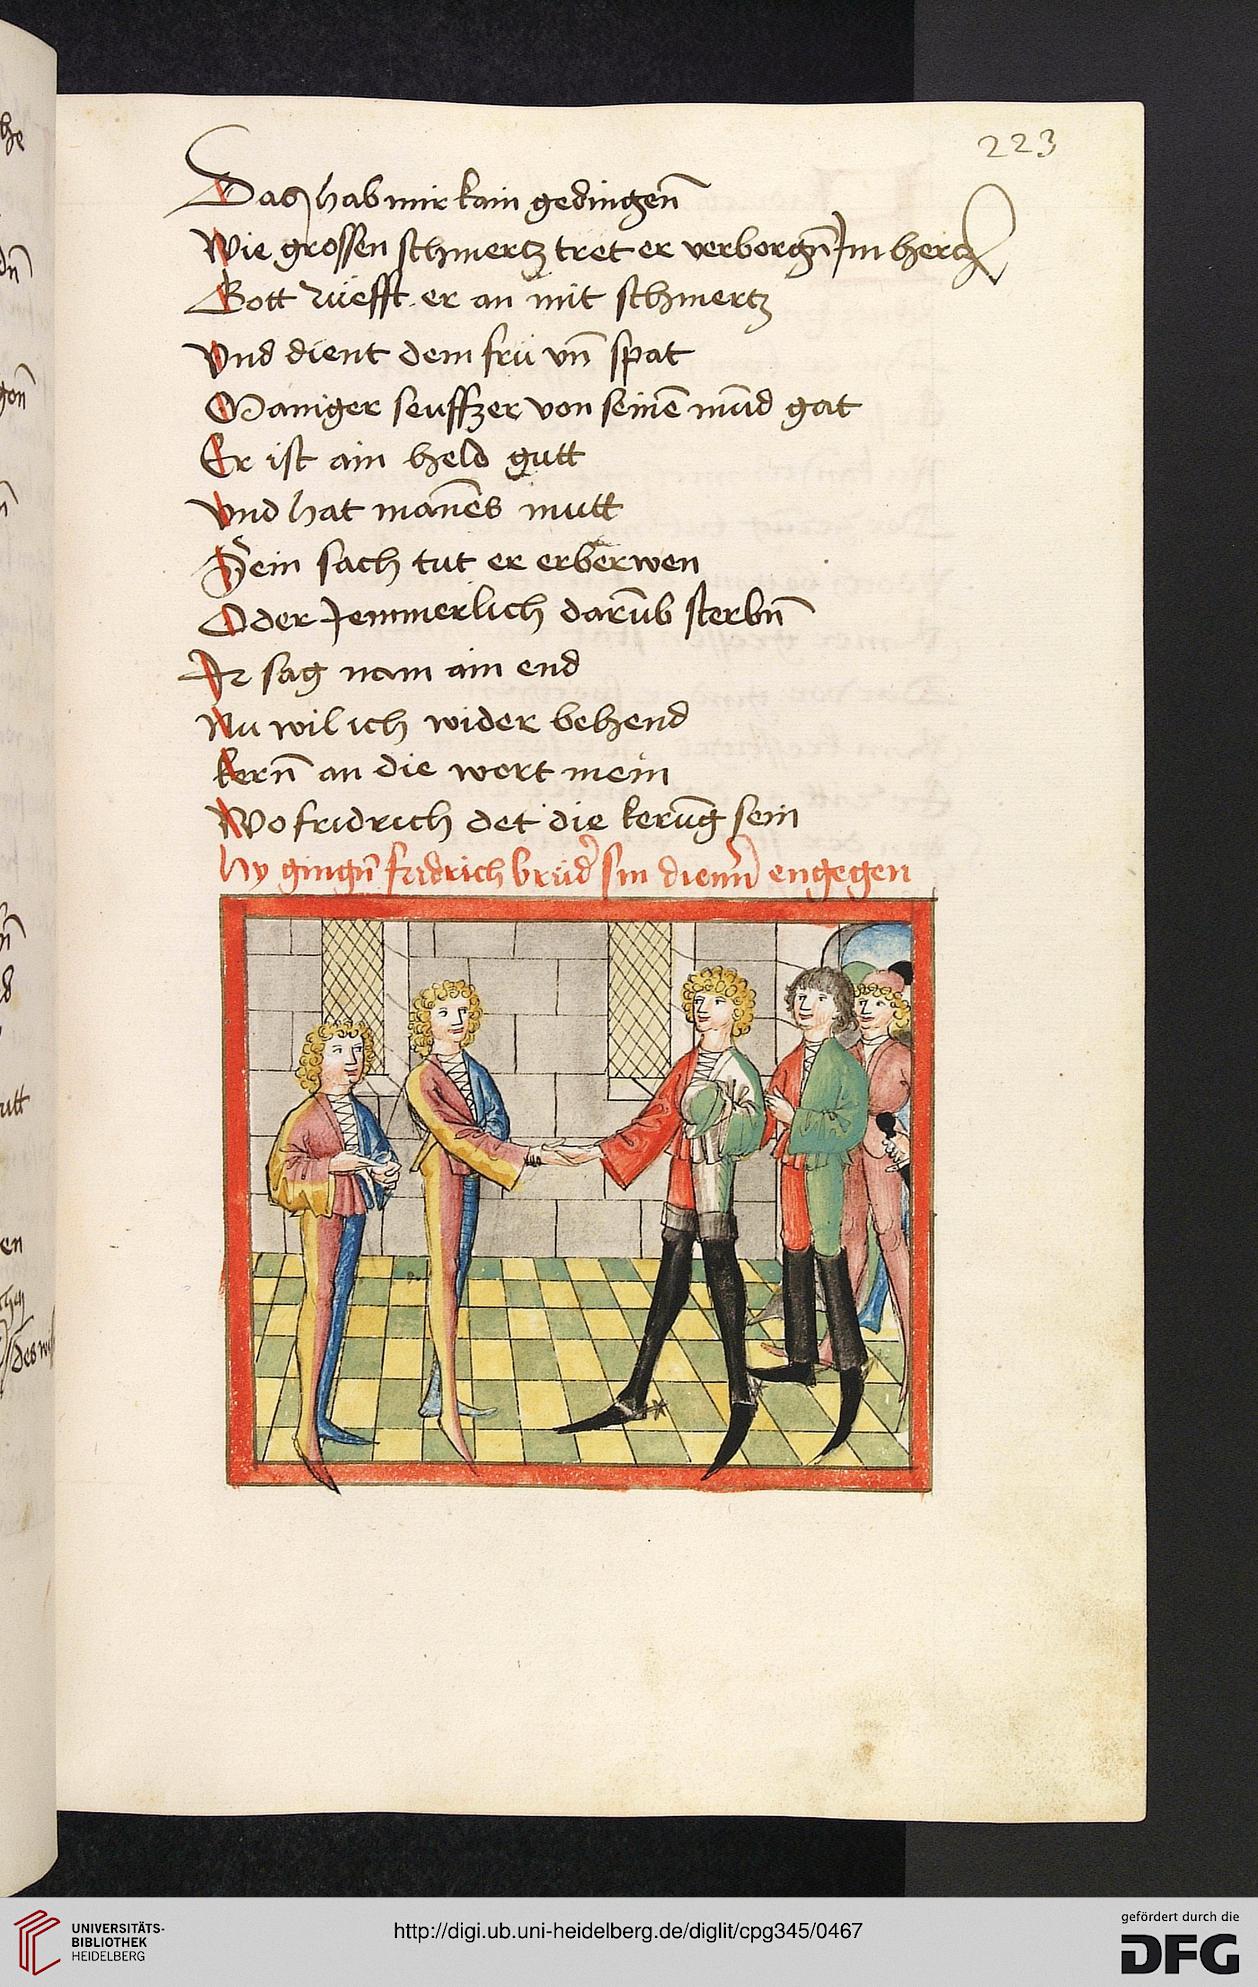 223
Das hab mir kain gedingen̄
Wie grossen schmertz tret er verborgn̄ Jm hercz
Gott rüefft er an mit schmertz
Vnd dient dem frü vn̄ spat
Maniger seuffzer von seinē mūd gat
Er ist ain held gutt
Vnd hat mañes mutt
Sein sach tut er erberwen
Oder Jemmerlich darūb sterbn̄
Jr sag nam ain end
Nu wil ich wider behend
kern̄ an die wort mein
Wo fridrich det die kerūg sein
hy gingn̄ fridrich brud' sin dienn̄ engegen
he
gon̄
utt
en
UNIVERSITÄTS-
BIBLIOTHEK
HEIDELBERG
http://digi.ub.uni-heidelberg.de/diglit/cpg345/0467
gefördert durch die
DFG